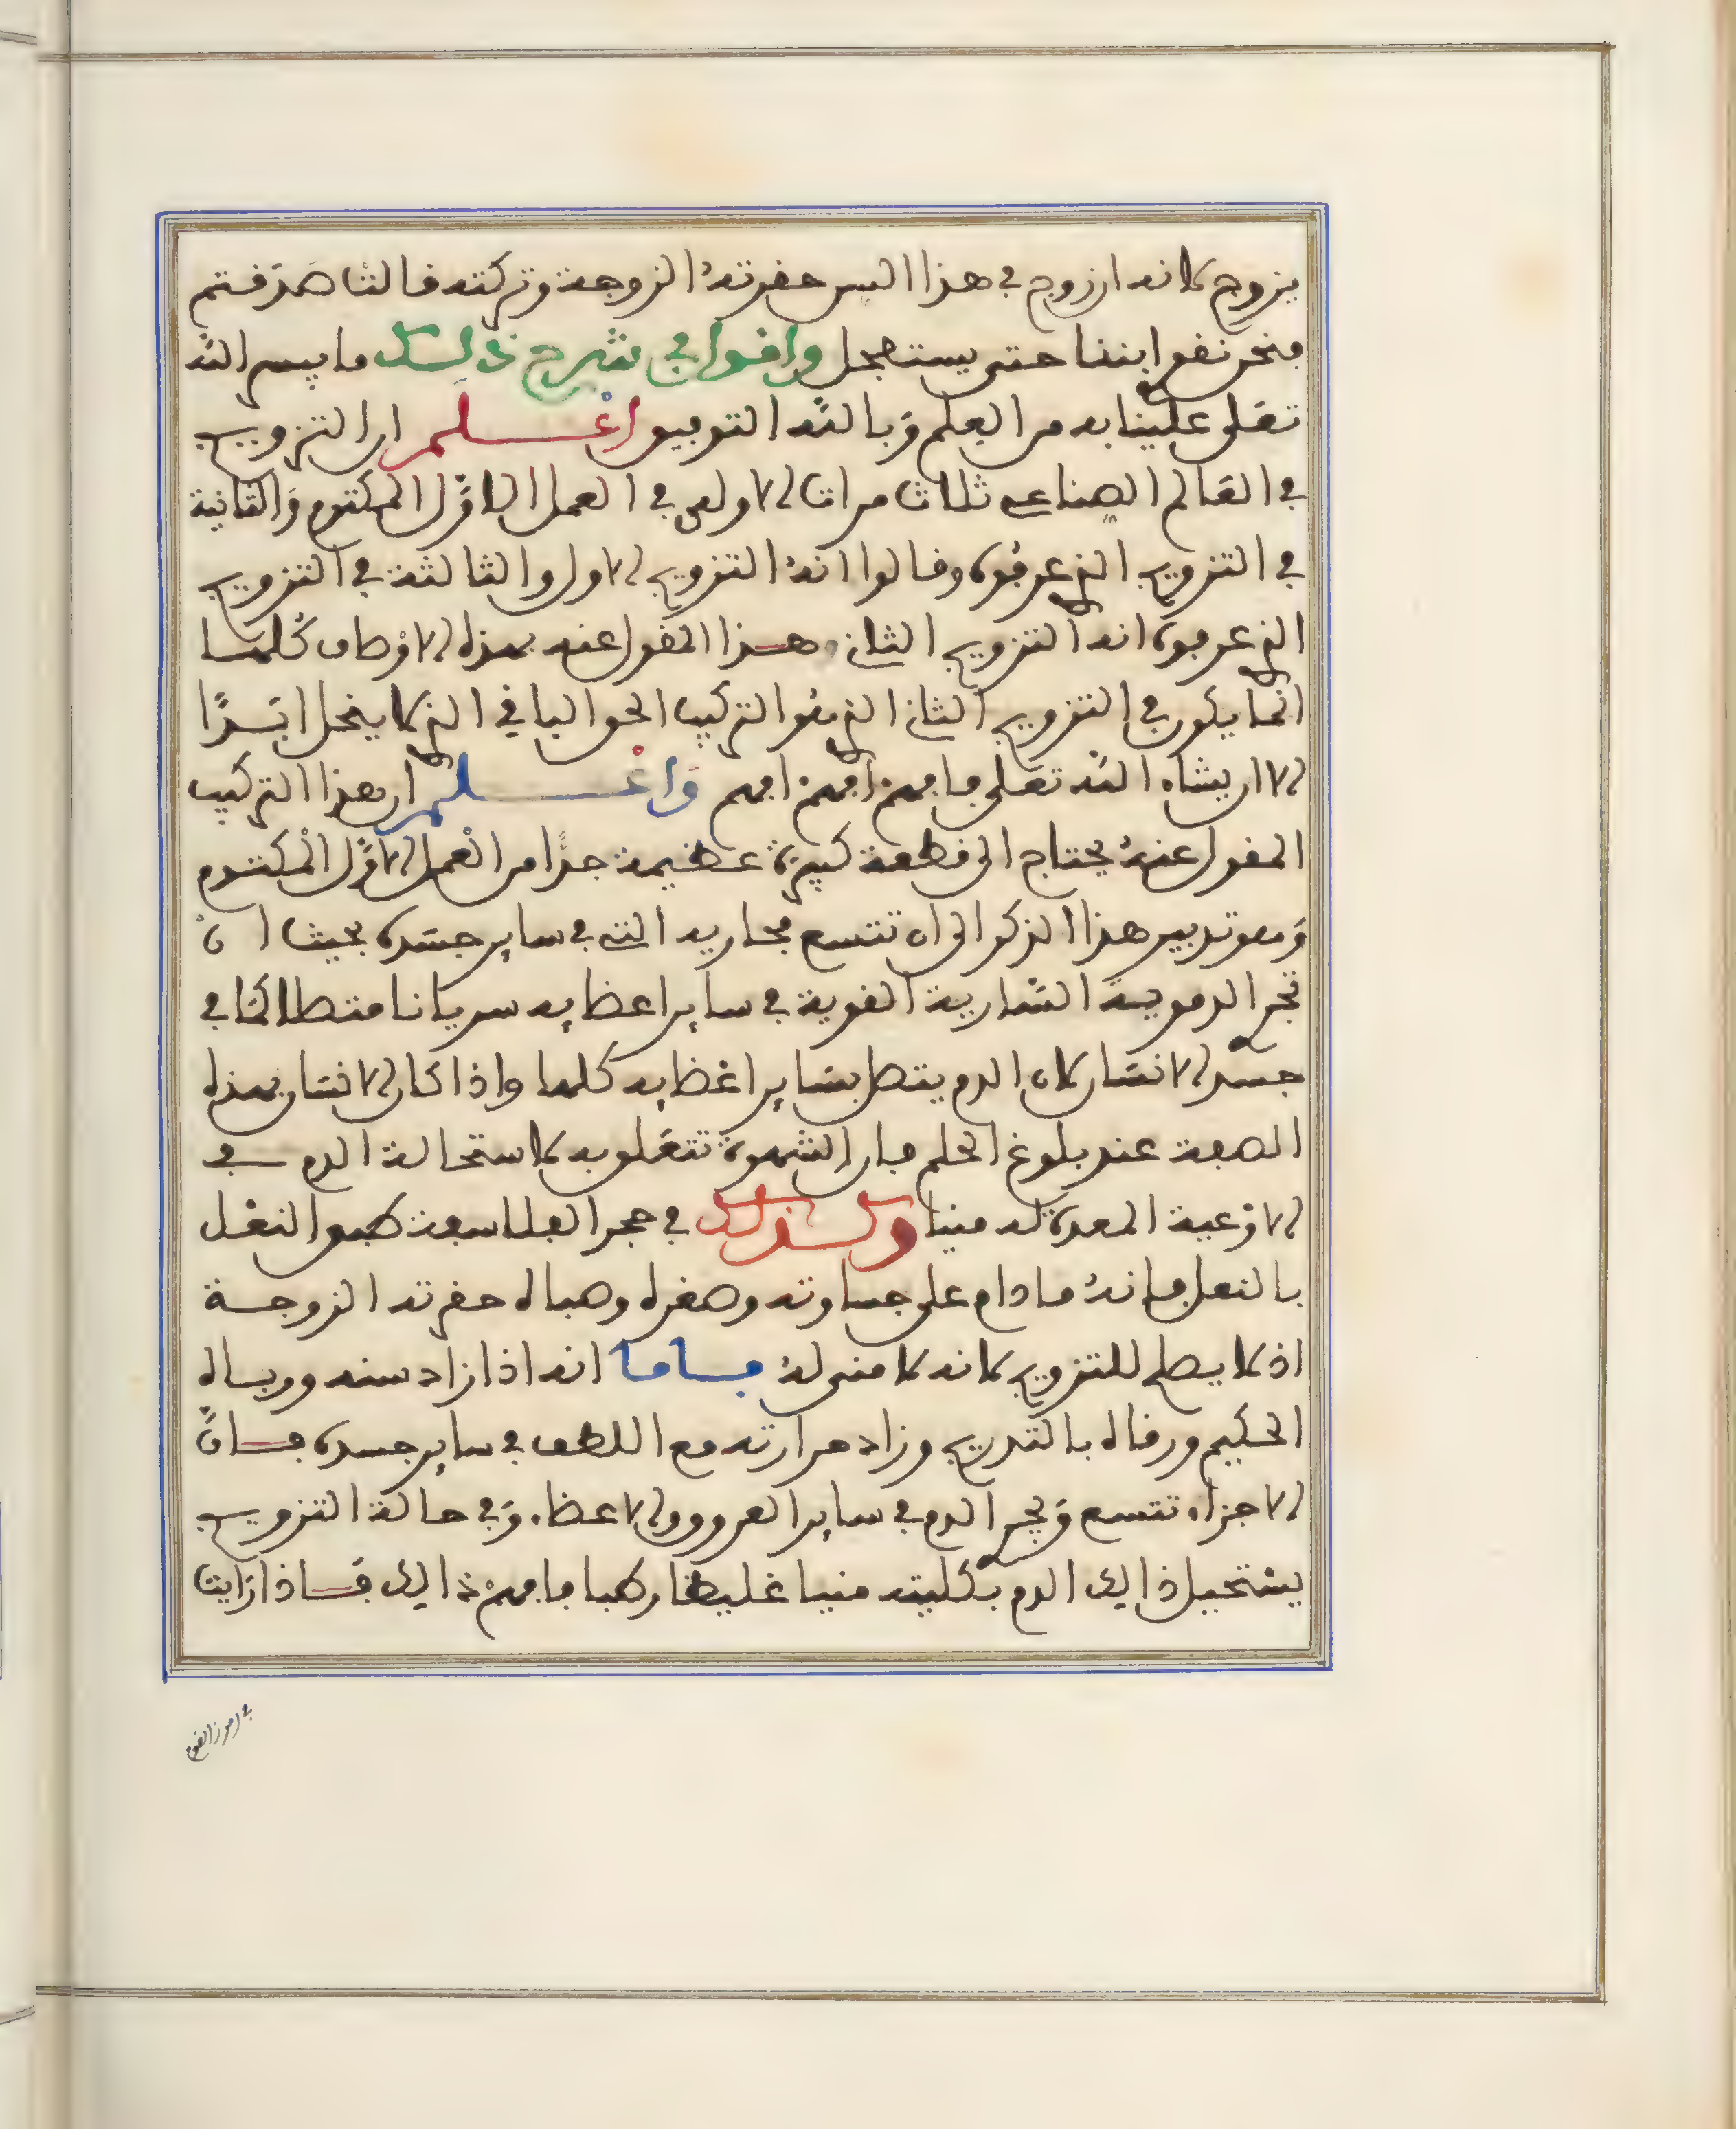 يزوج لانه ان زوج في هذا السن حقرته الزوجة وتركته قالتا صدقتم
فنحن نقو ابننا حتى يستعجل واقول في شرح ذلك ما يسر الله
تعلى علينا به من العلم وبالله التوفيق اعلم ان التزويج
في العالم الصناعي ثلاث مرات الاولى في العمل الاول المكتوم والثانية
في التزويج الذي عرفوه وقالوا انه التزويج الاول والثالثة في التزويج
الذي عرفوه انه التزويج الثاني وهذا المقول عنه بهذه الاوصاف كلها
انما يكون في التزويج الثاني الذي هو التركيب الحق الباقي الذي لا ينحل ابدا
الا ان يشاء الله تعلى فافهم افهم افهم واعلم ان هذا التركيب
المقول عنه يحتاج الى قطعة كبيرة عظيمة جدا من العمل الاول المكتوم
وهو تدبير هذا الذكر الى ان تتسع مجاريه التي في ساير جسده بحيث ان
تجري الدموية السارية القوية في ساير اعضايه سريانا متصلا كما في
جسد الانسان لان الدم يتصل بساير اعضايه كلها واذا كان الانسان بهذه
الصفة عند بلوغ الحلم فان الشهوة تتعلق به لاستحالة الدم في
الاوعية المعدة له منيا وكذلك في حجر الفلاسفة طبق النعل
بالنعل فانه ما دام على جساوته وصغره وصباه حقرته الزوجة
اذ لا يصلح للتزويج لانه لا مني له فاما انه اذا زاد سنه ورباه
الحكيم ورقاه بالتدريج وزاد حرارته مع اللطف في ساير جسده فان
الاجزاء تتسع ويجري الدم في ساير العروق والاعضاء وفي حالة التزويج
يستحيل ذالك الدم بكليته منيا غليظا رطبا فافهم ذالك فاذا رايت
في رموز القوم